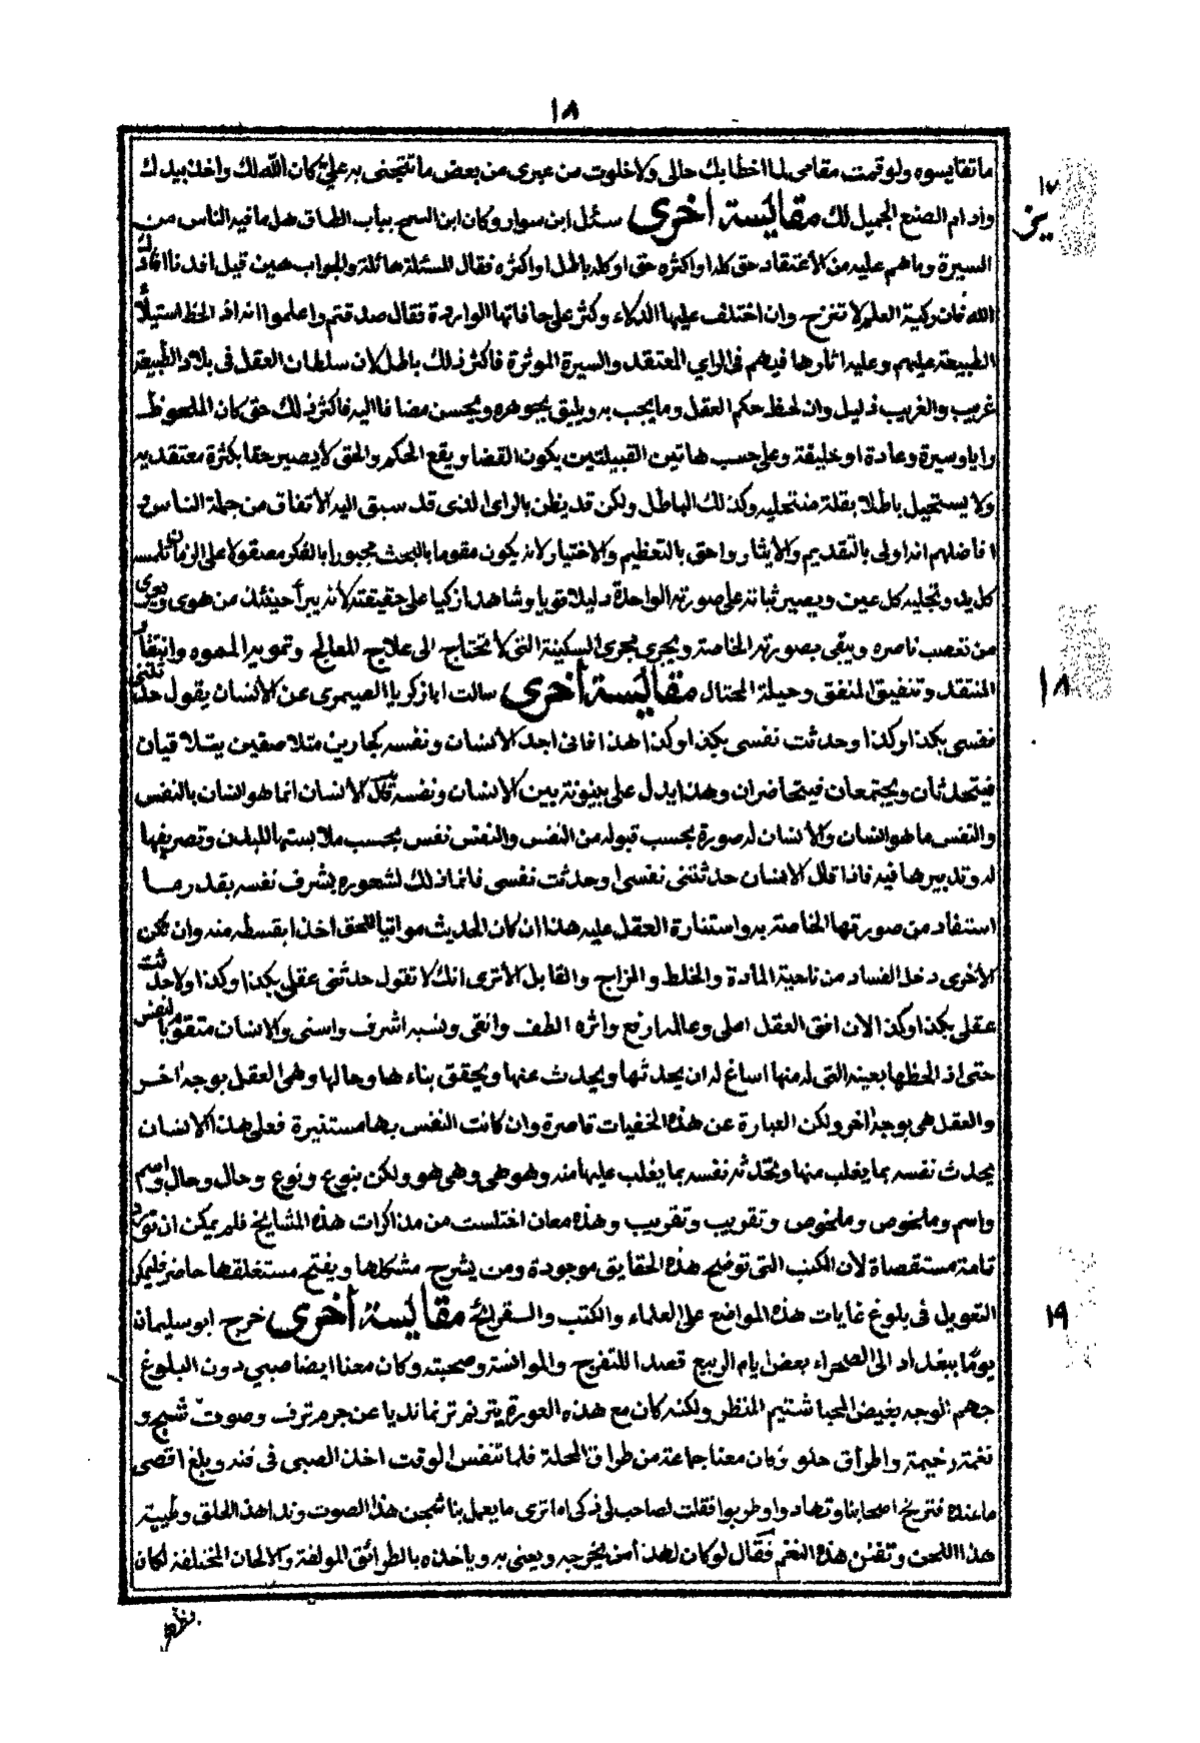 ١٨
ما تقايسوه ولو قمت مقامى لما اخطا بك حالى ولا خلوت من عبرى من بعض ما تتجنى به على كان الله لك واخذ بيدك
وادام الصنع الجميل لك مقايسة أخرى سئل ابن سوار وكان ابن السمح بباب الطاق هل ما فيه الناس من
١٧
السيرة وما هم عليه من الاعتقاد حق كله او اكثره حق او كله باطل او اكثره فقال المسئلة هائلة والجواب هين قيل افدنا افادك
الله فان ركية العلم لا تنزح وان اختلف عليها الدلاء وكثر على حافاتها الواردة فقال صدقتم واعلموا انه اذا لحظ استيلاء
الطبيعة عليهم وعليه اثارها فيهم فى الراي المعتقد والسيرة الموثرة فاكثر ذلك باطل لان سلطان العقل فى بلاد الطبيعة
غريب والغريب ذليل وان لحظ حكم العقل وما يجب به ويليق بجوهره ويحسن مضافا اليه فاكثر ذلك حق كان الملحوظ
رايا وسيرة وعادة او خليقة وعلى حسب هاتين القبيلتين يكون القضا ويقع الحكم والحق لا يصير حقا بكثرة معتقديه
ولا يستحيل باطلا بقلة منتحليه وكذلك الباطل ولكن قد يظن بالراى الذى قد سبق اليه الاتفاق من جملة الناس و
افاضلهم انه اولى بالتقديم والايثار واحق بالتعظيم والاختيار لانه يكون مقوما بالبحث مجبورا بالفكر مصقولا على الزمان تلمسه
كل يد وتجليه كل عين ويصير ثباته على صورته الواحدة دليلا قويا وشاهدا زكيا على حقيقته لانه يبرأ حينئذ من هوى ويبرى
من تعصب ناصره ويبقى بصورته الخاصة ويجرى مجرى السكينة التى لا تحتاج الى علاج المعالج وتمويه المموه وانتقاد
المنتقد وتنفيق المنفق وحيلة المحتال مقايسة أخرى سالت ابا زكريا الصيمرى عن الانسان يقول حدثتنى
١٨
نفسى بكذا وكذا وحدثت نفسى بكذا وكذا هذا فانى اجد الانسان ونفسه كجارين متلاصقين يتلاقيان
فيتحدثان ويجتمعان فيتحاضران وهذا يدل على بينونة بين الانسان ونفسه قال الانسان انما هو انسان بالنفس
والنفس ما هو انسان والانسان له صورة بحسب قبوله من النفس والنفس نفس بحسب ملابستها للبدن وتصريفها
له وتدبيرها فيه فاذا قال الانسان حدثتنى نفسى او حدثت نفسى فانما ذلك لشعوره بشرف نفسه بقدر ما
استفاد من صورتها الخاصة به واستنارة العقل عليه هذا ان كان الحديث مواتيا للحق اخذا بقسطه منه وان تكن
الاخرى دخل الفساد من ناحية المادة والخلط والمزاج والقابل الا ترى انك لا تقول حدثنى عقلى بكذا وكذا ولا حدثت
عقلى بكذا وكذا لان افق العقل اعلى وعالمه ارفع واثره الطف وانقى ونسبه اشرف واسنى والانسان متقوم بالنفس
حتى اذا لحظها بعينه التى له منها اساغ له ان يحدثها ويحدث عنها ويحقق بناءها وحالها وهى العقل بوجه اخر
والعقل هى بوجه آخر ولكن العبارة عن هذه الخفيات قاصرة وان كانت النفس بها مستنيرة فعلى هذا الانسان
يحدث نفسه بما يغلب منها وتحدثه نفسه بما يغلب عليها منه وهو هى وهى هو ولكن بنوع ونوع وحال وحال واسم
واسم وملخوص وملخوص وتقريب وتقريب وهذه معان اختلست من مذاكرات هذه المشايخ فلم يمكن ان تورد
تامة مستقصاة لان الكتب التى توضح هذه الحقايق موجودة ومن يشرح مشكلها ويفتح مستغلقها حاضر فليكن
التعويل فى بلوغ غايات هذه المواضع على العلماء والكتب والسقرائح مقايسة أخرى خرج ابو سليمان
١٩
يوما ببغداد الى الصحراء بعض ايام الربيع قصدا للتفرج والموانسة وصحبته وكان معنا ايضا صبي دون البلوغ
جهم الوجه بغيض المحيا شتيم المنظر ولكنه كان مع هذه العورة يترنم ترنما نديا عن جرم ترف وصوت شج و
نغمة رخيمة واطراق حلو وكان معنا جماعة من طراق المحلة فلما تنفس الوقت اخذ الصبى فى فنه وبلغ اقصى
ما عنده فترنح اصحابنا وتهادوا وطربوا فقلت لصاحب لى ذكى اما ترى ما يعمل بنا شجن هذا الصوت وندا هذا الحلق وطيبة
هذا اللحن وتفنن هذه النغم فقال لو كان لهذا من يخرجه ويعنى به وياخذه بالطرائق المولفة والالحان المختلفة لكان